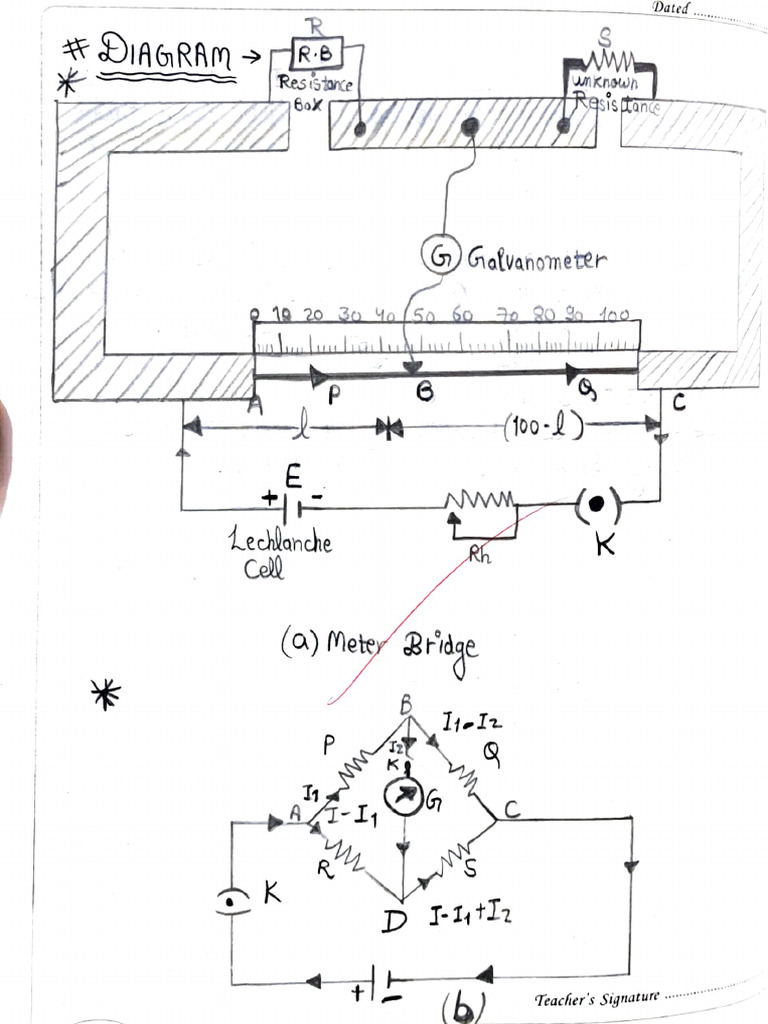 Dated
# DIAGRAM →
R
R.B
Resistance
Box
S
unknown
Resistance
G Galvanometer
0 10 20 30 40 50 60 70 80 90 100
A P B Q C
l (100-l)
+ E -
Lechlanche
Cell
Rh
K
(a) Meter Bridge
B
I1-I2
P I2 Q
K
I1 G
A I-I1 C
R S
K
D I-I1+I2
+ -
(b)
Teacher's Signature